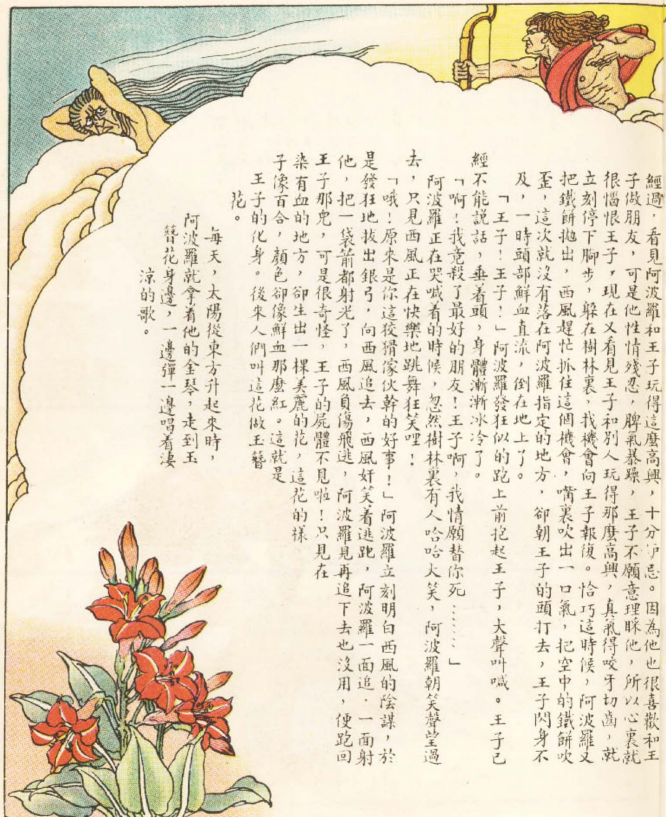 經過，看見阿波羅和王子玩得這麼高興，十分忌。因為他也很喜歡和王
子做朋友，可是他性情殘忍，脾氣暴躁，王子不願意理睬他，所以心裏就
很惱恨王子，現在又看見王子和別人玩得那麼高興，真氣得咬牙切齒，就
立刻停下脚步，躲在樹林裏，找機會向王子報復。恰巧這時候，阿波羅又
把鐵餅拋出，西風趕忙抓住這個機會，嘴裏吹出一口氣，把空中的鐵餅吹
歪，這次就沒有落在阿波羅指定的地方，卻朝王子的頭打去，王子閃身不
及，一時頭部鮮血直流，倒在地上了。
「王子！王子！」阿波羅發狂似的跑上前抱起王子，大聲叫喊。王子已
經不能說話，垂着頭，身體漸漸冰冷了。
「啊！我竟殺了最好的朋友！王子啊，我情願替你死……」
阿波羅正在哭喊着的時候，忽然樹林裏有人哈哈大笑，阿波羅朝笑聲望過
去，只見西風正在快樂地跳舞狂笑哩！
「哦！原來是你這狡猾傢伙幹的好事！」阿波羅立刻明白西風的陰謀，於
是發狂地拔出銀弓，向西風追去，西風奸笑着逃跑，阿波羅一面追，一面射
他，把一袋箭都射光了，西風負傷飛逃，阿波羅見再追下去也沒用，便跑回
王子那兒，可是很奇怪，王子的屍體不見啦！只見在
染有血的地方，卻生出一棵美麗的花，這花的樣
子像百合，顏色卻像鮮血那麼紅。這就是
王子的化身。後來人們叫這花做玉簪
花。
每天，太陽從東方升起來時，
阿波羅就拿着他的金琴，走到玉
簪花身邊，一邊彈一邊唱着淒
涼的歌。